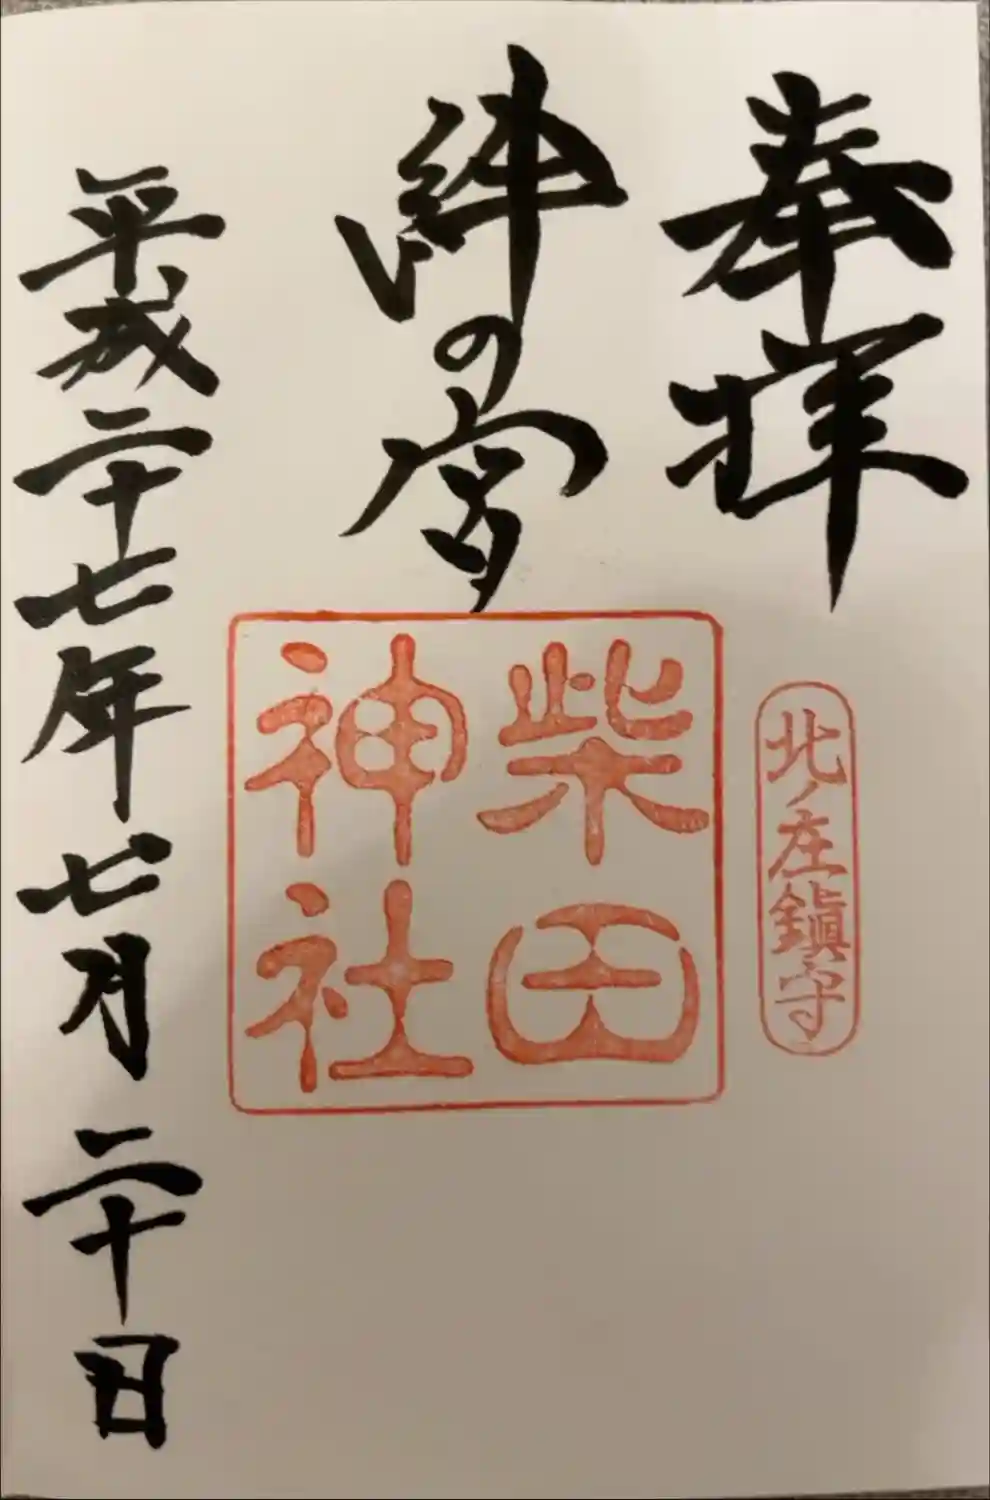 奉拝
北ノ庄鎮守
絆の宮
柴田
神社
平成二十七年七月二十日